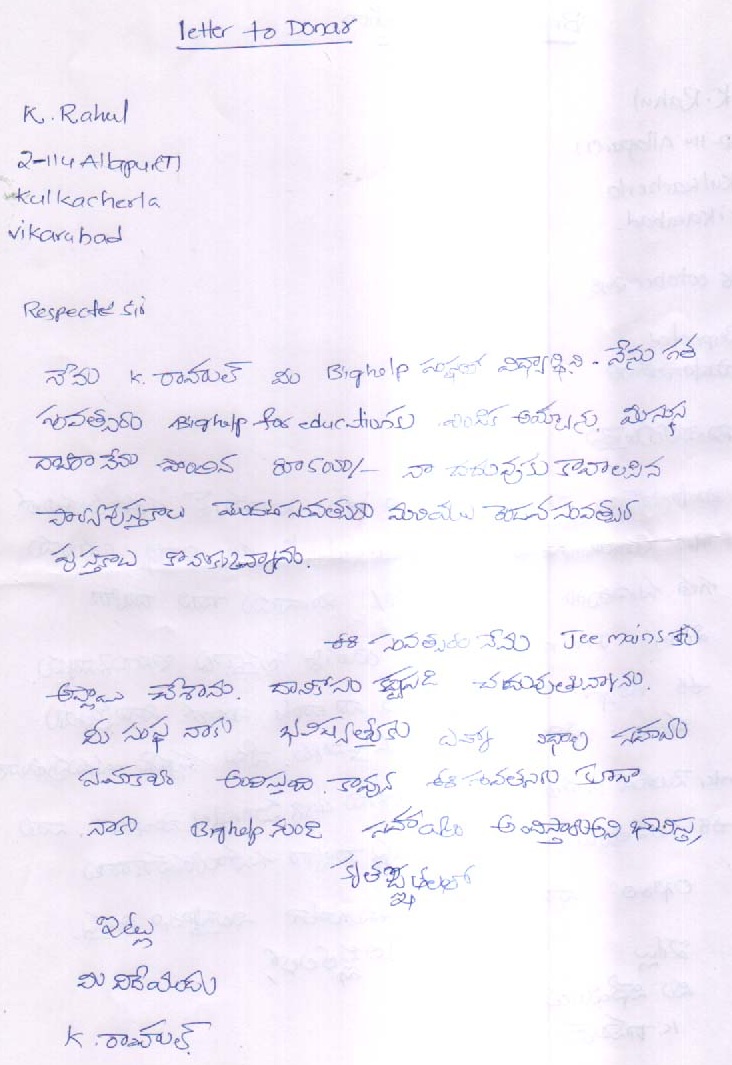 letter to Donar
K. Rahul
2-114 Allapur(T)
Kulkacherla
vikarabad
Respected sir
నేను K. రాహుల్ మీ Bighelp సంస్థలో విధ్యార్థిని - నేను గత
సంవత్సరం Bighelp for educationకు ఎంపిక అయ్యాను. మీ సంస్థ
ద్వారా నేను పొందిన రూ 6000/- నా చదువుకు కావాలసిన
పాఠ్యపుస్తకాలు మొదటి సంవత్సరం మరియు రెండవ సంవత్సర
పుస్తకాలు కొనుకున్నాను.
ఈ సంవత్సరం నేను Jee mains కు
అప్లై చేశాను. దానికోసం కష్టపడి చదువుతున్నాను.
మీ సంస్థ నాకు భవిష్యత్తుకు ఎన్నో విధాల సహాయ
సహకారం అందిస్తుంది. కావున ఈ సంవత్సరం కూడా
నాకు Bighelp నుండి సహాయం అందిస్తారు అని భావిస్తు,
కృతజ్ఞతలతో
ఇట్లు
మీ విదేయుడు
K. రాహుల్